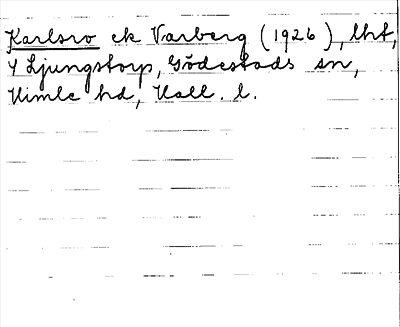 Karlsro ek Varberg (1926), lht,
4 Ljungstorp, Gödestads sn,
Himle hd, Hall. l.